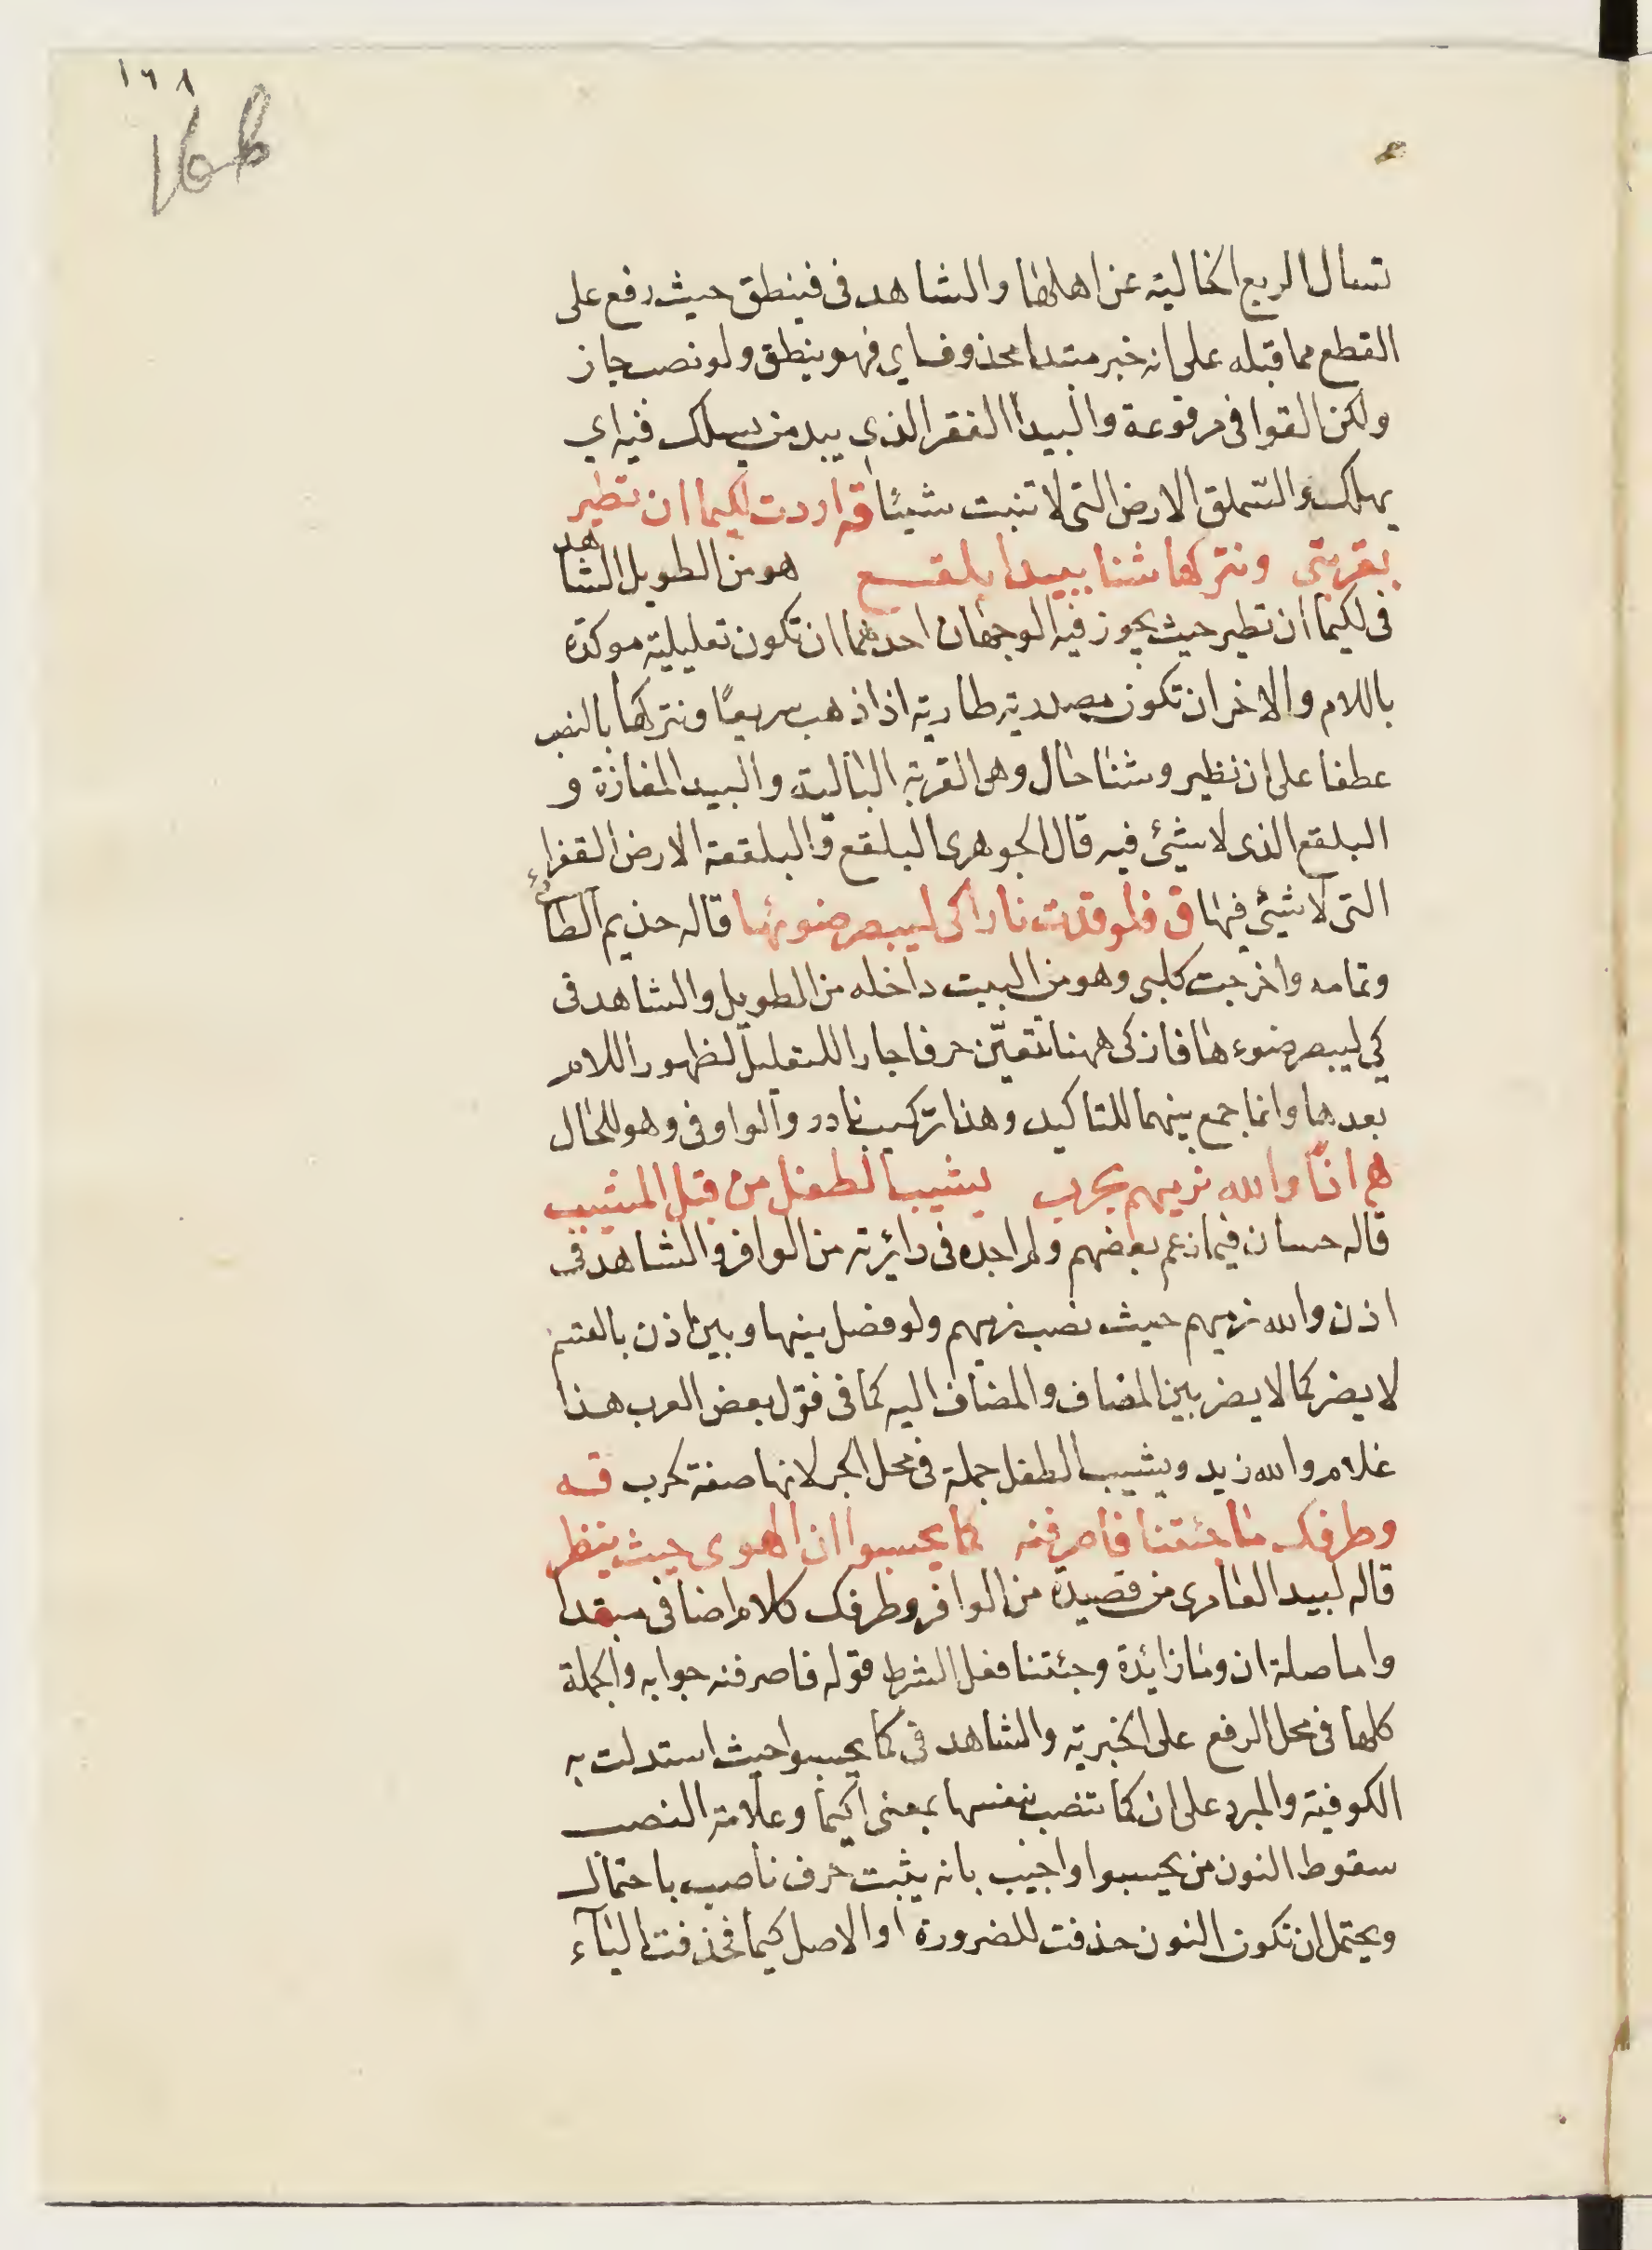 ١٦٨
166
تسال الربع الخالية عن اهلها والشاهد فى فينطق حيث رفع على
القطع مما قبله على انه خبر مبتدا محذوف اي فهو ينطق ولو نصب جاز
ولكن القوافى مرفوعة والبيدا القفر الذى يبد من يسلك فيه اي
يهلك والسملق الارض التى لا تنبت شيئا قه اردت لكيما ان تطير
بقربتى ونتركها شنا ببيدا بلقع هو من الطويل الشاهد
فى لكيما ان تطير حيث يجوز فيه الوجهان احدهما ان تكون تعليلية موكدة
باللام والاخر ان تكون مصدرية طارية اذا ذهب سريعًا ونتركها بالنصب
عطفا على ان نطير وشنا حال وهى القربة البالية والبيدا المفازة و
البلقع الذى لا شيئ فيه قال الجوهرى البلقع والبلقعة الارض القفراء
التى لا شيئ فيها ق فاوقدت نارا كى ليبصر ضوئها قاله حذيم الطائ
وتمامه واخرجت كلبى وهو من البيت داخله من الطويل والشاهد فى
كي ليبصر ضوءها فان كى ههنا تتعيّن حرفا جارا للتعليل لظهور اللام
بعدها وانما جمع بينهما للتاكيد وهذا تركيب نادر والواو فى وهو للحال
هم اذًا والله نرميهم بحرب يشيب الطفل من قبل المشيب
قاله حسان فيما زعم بعضهم ولم اجده فى دائرته من الوافر والشاهد فى
اذن والله نرميهم حيث نصب نرميهم ولو فصل بينها وبين اذن بالقسم
لا يضر كما لا يضر بين المضاف والمضاف اليه كما فى قول بعض العرب هذا
غلام والله زيد ويشيب الطفل جملة فى محل الجر لانها صفة لحرب قـه
وطرفك ما جئتنا فاصرفنه كما يحسبوا ان الهوى حيث ينظر
قاله لبيد العامرى من قصيدة من الوافر وطرفك كلام اضافى مبتدا
واما صلة ان وما زائدة وجئتنا فعل الشرط قوله فاصرفنه جوابه والجملة
كلها فى محل الرفع على الخبرية والشاهد فى كما يحسبوا حيث استدلت به
الكوفية والمبرد على ان كما تنصب بنفسها بمعنى كيما وعلامة النصب
سقوط النون من يحسبوا واجيب بانه يثبت حرف ناصب باحتمال
ويحتمل ان تكون النون حذفت للضرورة او الاصل كيما فحذفت الياء